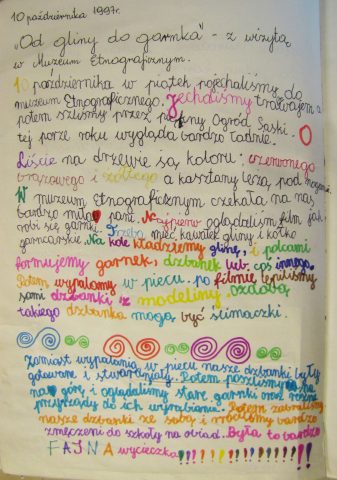 10 października 1997r.
"Od gliny do garnka" - z wizytą
w Muzeum Etnograficznym.
10 października w piątek pojechaliśmy do
muzeum Etnograficznego. Jechaliśmy tramwajem a
potem szliśmy przez piękny Ogród Saski. O
tej porze roku wygląda bardzo ładnie.
Liście na drzewie są koloru: czerwonego
brązowego i żółtego a kasztany leżą pod nogami.
W muzeum Etnograficznym czekała na nas
bardzo miła pani. Najpierw oglądaliśm film jak
robi się garnki. Trzeba mieć kawałek gliny i kółko
garncarskie. Na kole kładziemy glinę, i palcami
formujemy garnek, dzbanek lub coś innego.
Potem wypalamy w piecu. po filmie lepiliśmy
sami dzbanki z modeliny. ozdobą
takiego dzbanka mogą być ślimaczki.
Zamiast wypalania w piecu nasze dzbanki były
gotowane i stwardniały. Potem poszliśmy na
na górę i oglądaliśmy stare garnki oraz różne
przyrządy do ich wyrabiania. Potem zabraliśmy
nasze dzbanki ze sobą i wróciliśmy bardzo
zmęczeni do szkoły na obiad. Była to bardzo
FAJNA wycieczka!!!!!!!!!!!!!!!